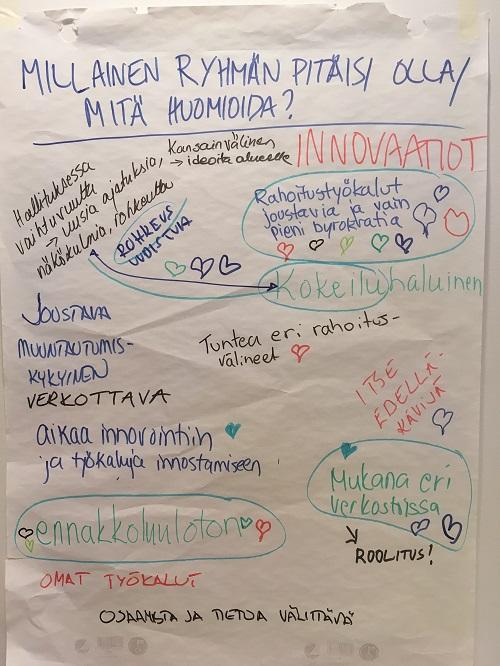 MILLAINEN RYHMÄN PITÄISI OLLA/
MITÄ HUOMIOIDA?
Hallituksessa
vaihtuvuutta
→ uusia ajatuksia,
näkökulmia, rohkeutta
Kansainvälinen
→ ideoita alueelle
INNOVAATIOT
ROHKEUS
UUDISTUA
Rahoitustyökalut
joustavia ja vain
pieni byrokratia
Kokeiluhaluinen
JOUSTAVA
MUUNTAUTUMIS-
KYKYINEN
VERKOTTAVA
Tuntea eri rahoitus-
välineet
ITSE
EDELLÄ-
KÄVIJÄ
aikaa innovointiin
ja työkaluja innostamiseen
Mukana eri
verkostoissa
ROOLITUS!
ennakkoluuloton
OMAT TYÖKALUT
OSAAMISTA JA TIETOA VÄLITTÄVÄ